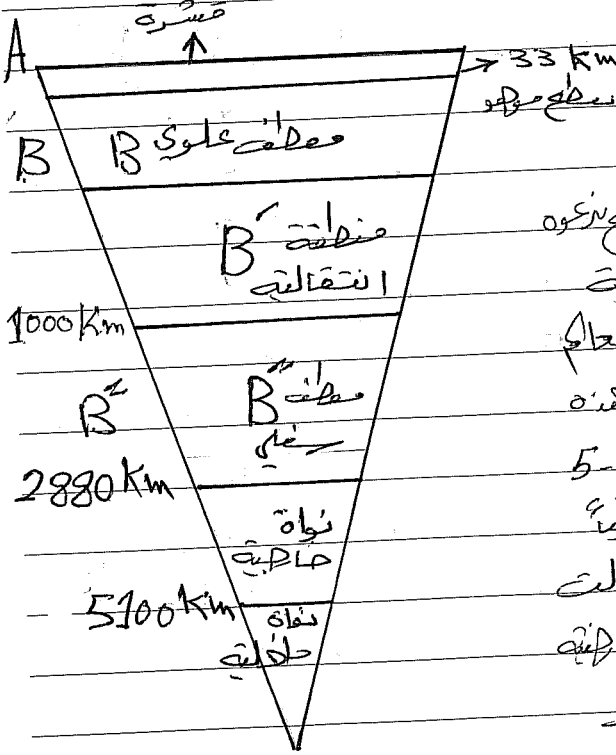 قشرة
A
33 km
سطح موهو
B
معطف علوي B
منطقة B′
انتقالية
1000 Km
B″
معطف B″
سفلي
2880 Km
5 -
نواة
خارجية
5100 Km
نواة
داخلية